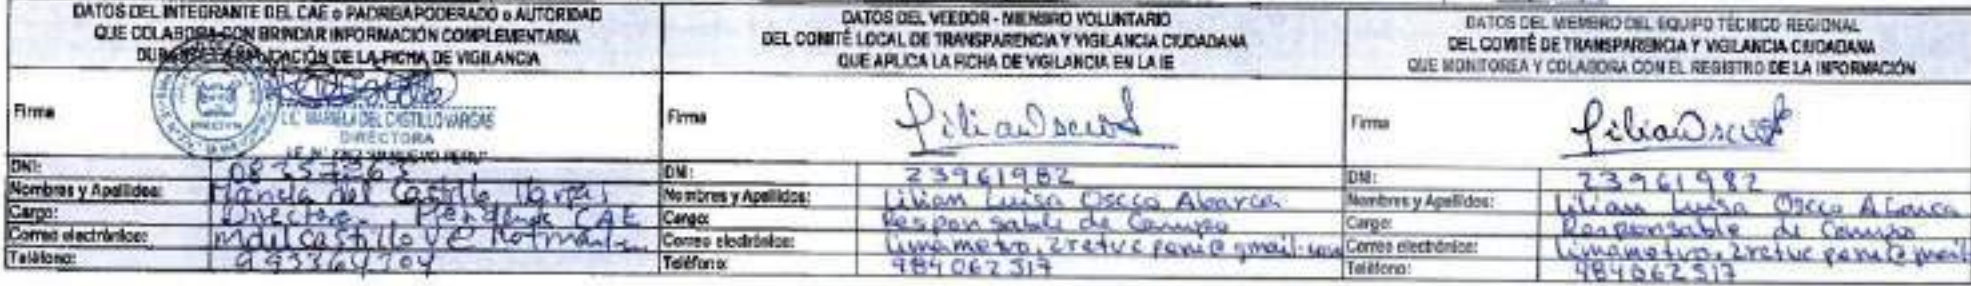 DATOS DEL INTEGRANTE DEL CAE o PADRE/APODERADO o AUTORIDAD
QUE COLABORA CON BRINDAR INFORMACIÓN COMPLEMENTARIA
DURANTE LA APLICACIÓN DE LA FICHA DE VIGILANCIA
Firma
LIC. MARIELA DEL CASTILLO VARGAS
DIRECTORA
DNI: 08357263
Nombres y Apellidos: Mariela del Castillo Vargas
Cargo: Directora CAE
Correo electrónico:
Teléfono: 993364704
DATOS DEL VEEDOR - MIEMBRO VOLUNTARIO
DEL COMITÉ LOCAL DE TRANSPARENCIA Y VIGILANCIA CIUDADANA
QUE APLICA LA FICHA DE VIGILANCIA EN LA IE
Firma
DNI: 23961982
Nombres y Apellidos: Lilian Luisa Oscco Abarca
Cargo: Responsable de Campo
Correo electrónico: limametro.2retvcperu@gmail.com
Teléfono: 984062517
DATOS DEL MIEMBRO DEL EQUIPO TÉCNICO REGIONAL
DEL COMITÉ DE TRANSPARENCIA Y VIGILANCIA CIUDADANA
QUE MONITOREA Y COLABORA CON EL REGISTRO DE LA INFORMACIÓN
Firma
DNI: 23961982
Nombres y Apellidos: Lilian Luisa Oscco Abarca
Cargo: Responsable de Campo
Correo electrónico: limametro.2retvcperu@gmail
Teléfono: 984062517